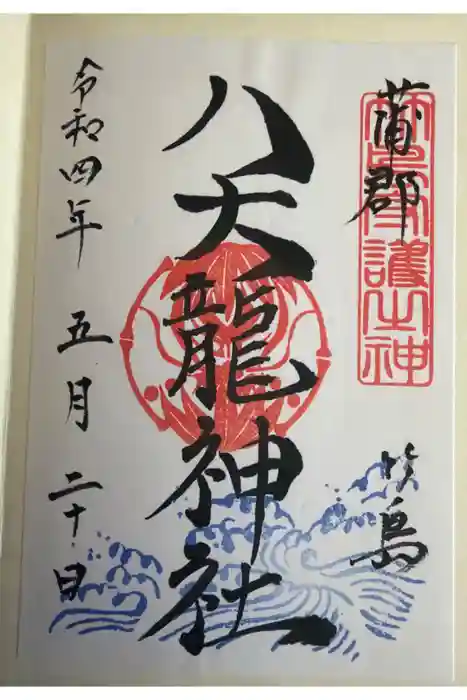 蒲郡
竹島守護之神
竹島
八大龍神社
令和四年 五月 二十日